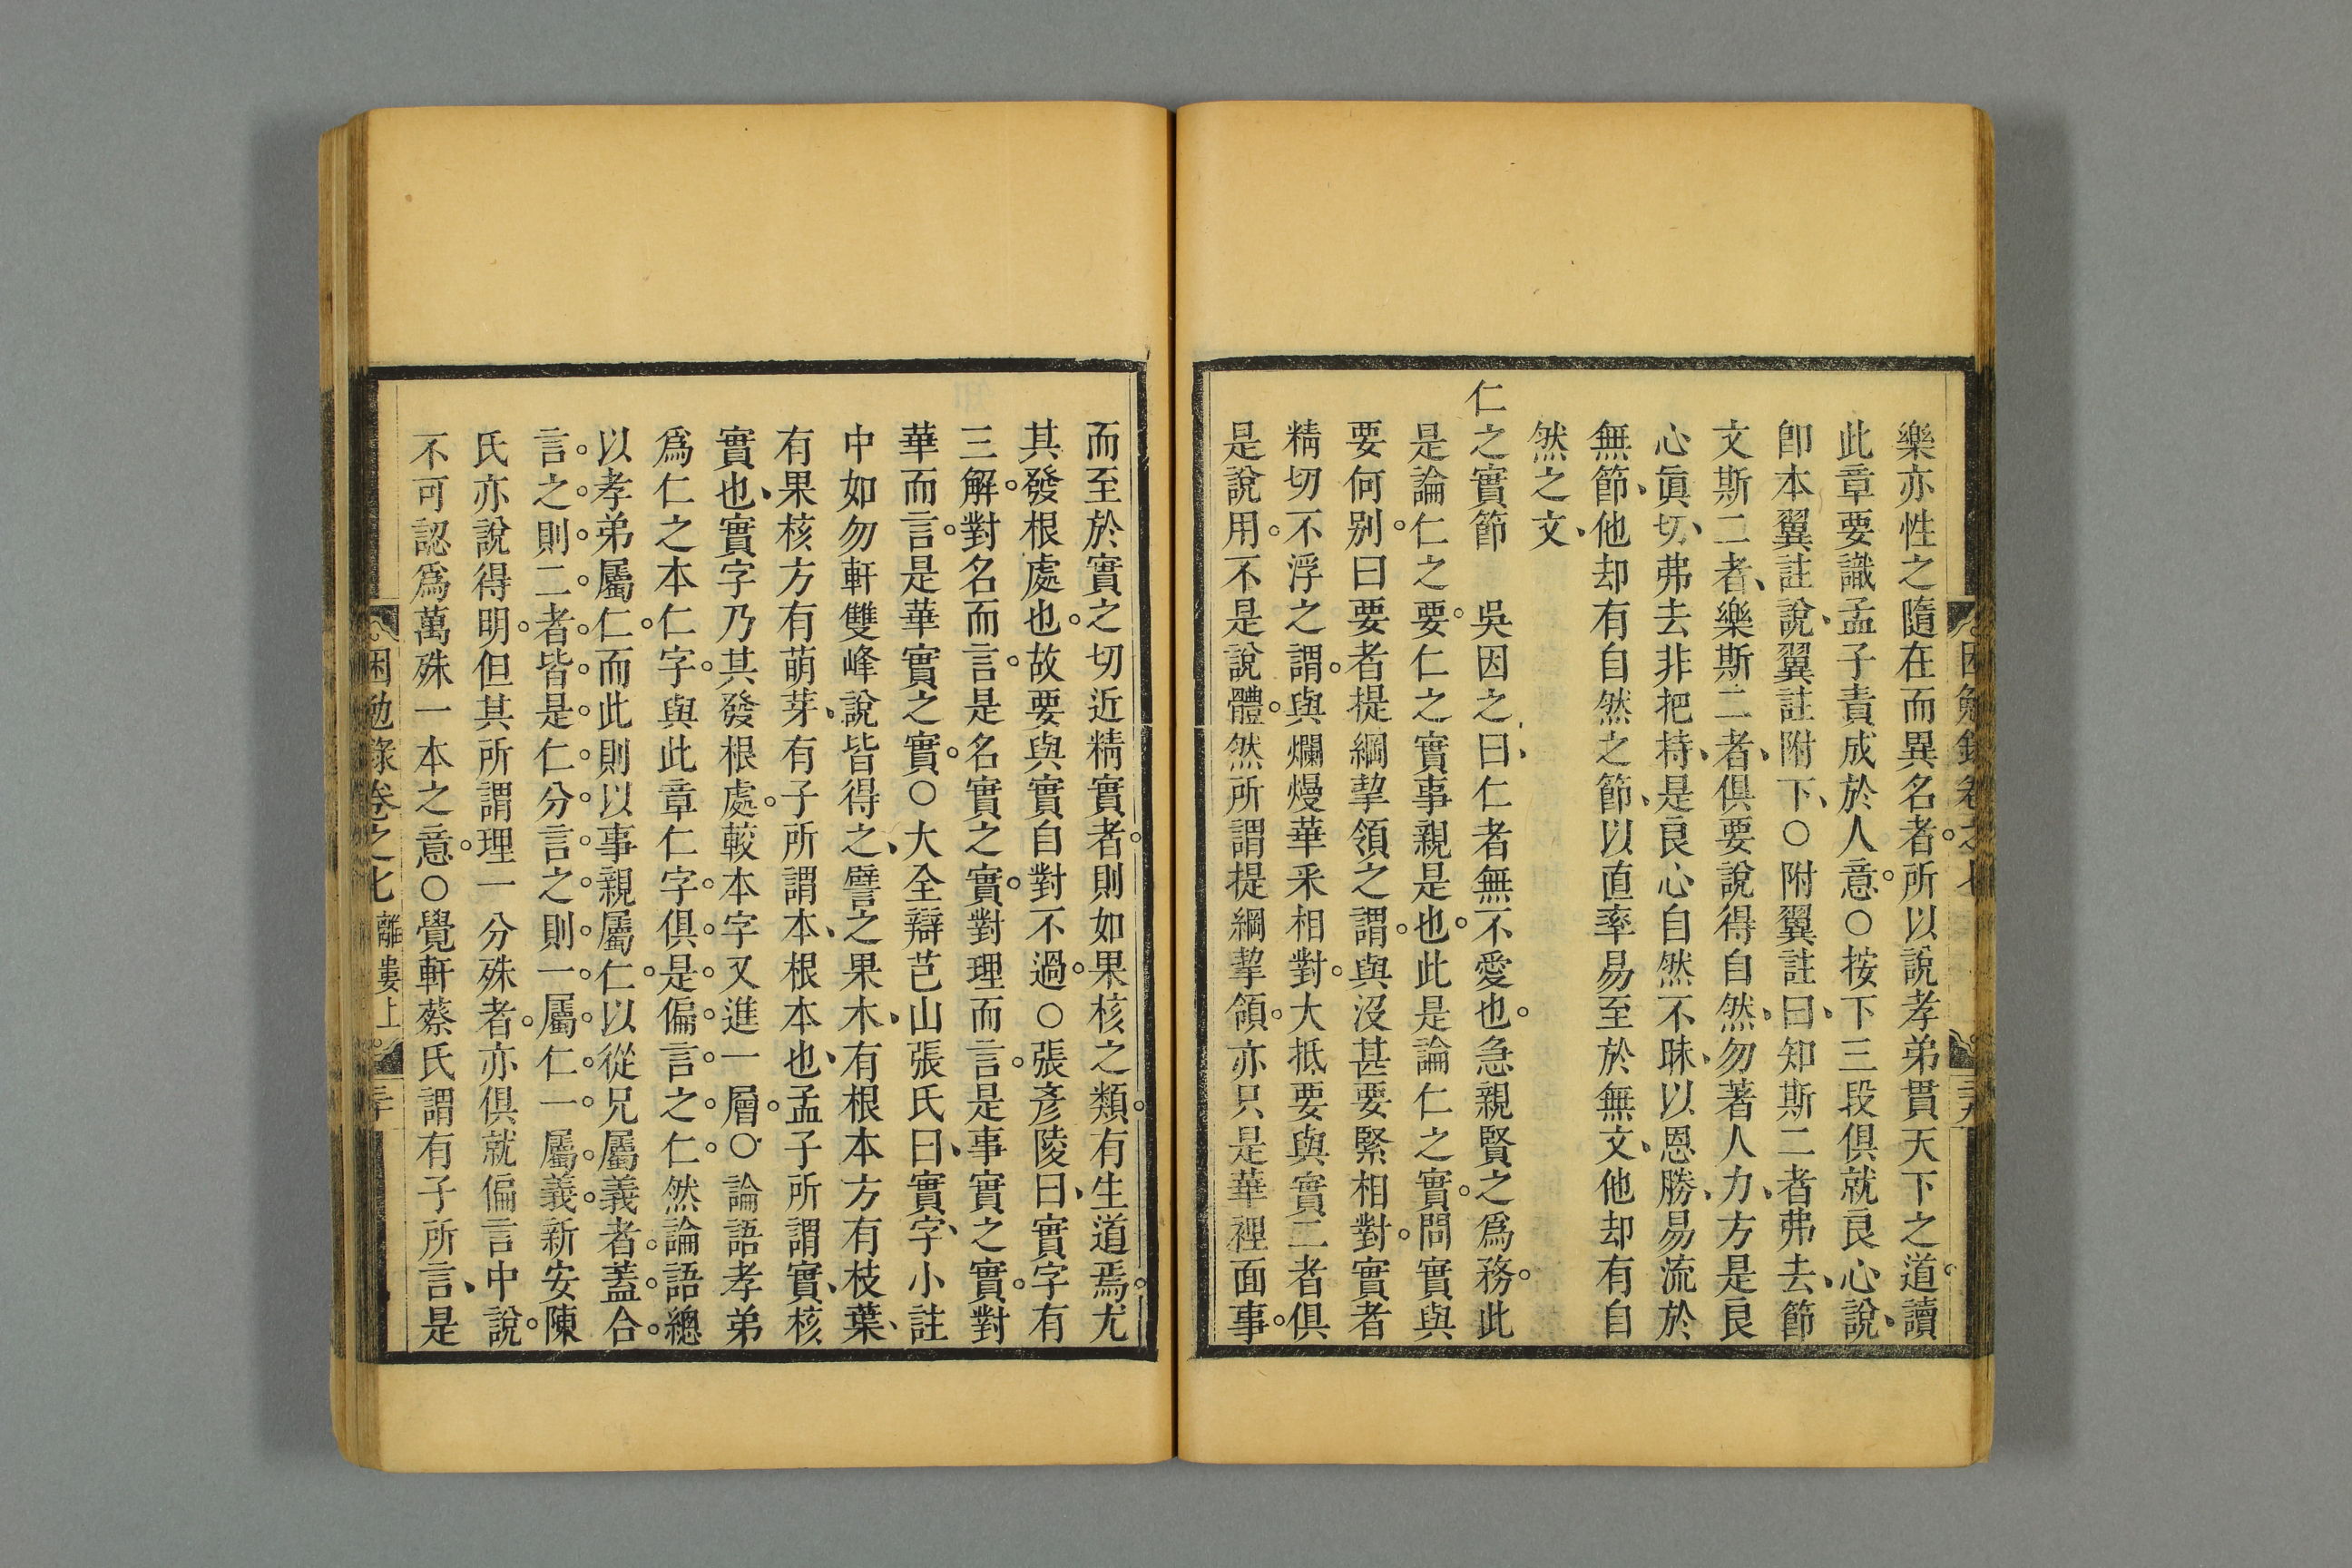 樂亦性之隨在而異名者。所以說孝弟貫天下之道。讀
此章要識孟子責成於人意。○按下三段俱就良心說、
卽本翼註說、翼註附下、○附翼註曰、知斯二者弗去、節
文斯二者、樂斯二者、俱要說得自然、勿著人力、方是良
心眞切、弗去非把持、是良心自然不昧、以恩勝、易流於
無節、他却有自然之節、以直率易至於無文、他却有自
然之文、
仁之實節　吳因之曰、仁者無不愛也。急親賢之爲務。此
是論仁之要。仁之實事親是也。此是論仁之實。問實與
要何别。曰要者提綱挈領之謂。與沒甚要緊相對。實者
精切不浮之謂。與爛熳華采相對。大抵要與實二者俱
是說用。不是說體。然所謂提綱挈領。亦只是華裡面事。
而至於實之切近精實者。則如果核之類。有生道焉。尤
其發根處也。故要與實自對不過。○張彥陵曰、實字有
三解。對名而言。是名實之實。對理而言。是事實之實。對
華而言。是華實之實。○大全辯芑山張氏曰、實字、小註
中如勿軒雙峰說皆得之、譬之果木、有根本方有枝葉、
有果核方有萌芽、有子所謂本、根本也、孟子所謂實、核
實也、實字乃其發根處。較本字又進一層。○論語孝弟
爲仁之本仁字。與此章仁字。俱。是。偏。言。之。仁。然論語總
以孝弟屬仁。而此則以事親屬仁。以從兄屬義者。蓋。合。
言。之。則。二。者。皆。是。仁。分。言。之。則。一。屬。仁。一。屬。義。新安陳
氏亦說得明。但其所謂理一分殊者。亦俱就偏言中說。
不可認爲萬殊一本之意。○覺軒蔡氏謂有子所言、是
困勉錄卷之七　離婁上　三十